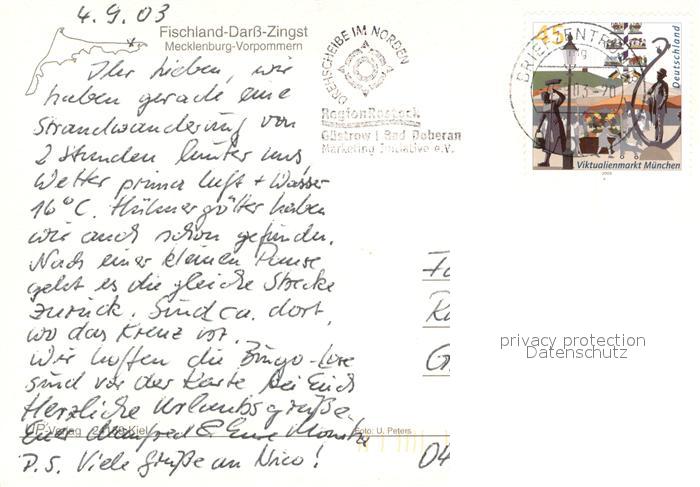 4.9.03
Fischland-Darß-Zingst
Mecklenburg-Vorpommern
Ihr Lieben, wir
haben gerade eine
Strandwanderung von
2 Stunden hinter uns,
Wetter prima Luft + Wasser
16°C. Hühnergötter haben
wir auch schon gefunden.
Nach einer kleinen Pause
geht es die gleiche Strecke
zurück. Sind ca. dort,
wo das Kreuz ist.
Wir hoffen die Bingo-Lose
sind vor der Karte bei Euch
Herzliche Urlaubsgrüße
Euer Manfred & Eure Monika
P.S. Viele Grüße an Nico!
UP-Verlag 24159 Kiel
Foto: U. Peters
DREHSCHEIBE IM NORDEN
RegionRostock
Güstrow | Bad Doberan
Marketing Initiative e.V.
BRIEFZENTRUM
45
Deutschland
Viktualienmarkt München
2003
G
04
privacy protection
Datenschutz